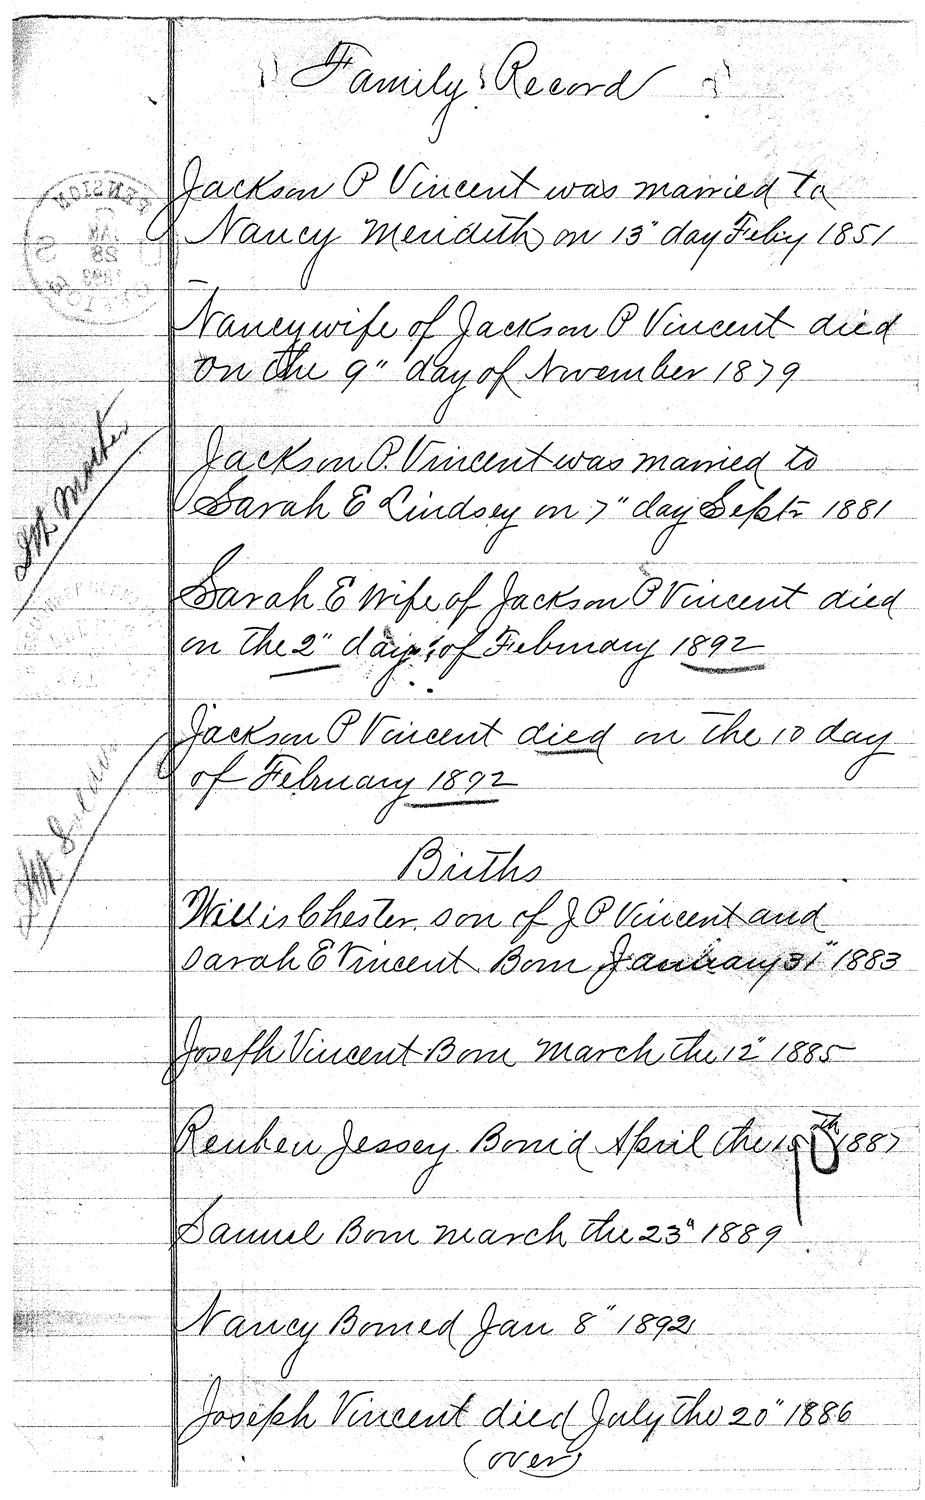 Family Record
Jackson P Vincent was married to
Nancy Merideth on 13" day Feby 1851
Nancy wife of Jackson P Vincent died
on the 9" day of November 1879
Jackson P. Vincent was married to
Sarah E Lindsey on 7" day Sept 1881
Sarah E Wife of Jackson P Vincent died
on the 2" day of February 1892
Jackson P Vincent died on the 10 day
of February 1892
Births
Willis Chester son of J P Vincent and
Sarah E Vincent Born January 31" 1883
Joseph Vincent Born March the 12" 1885
Reuben Jessey Borned April the 10th 1887
Samuel Born March the 23" 1889
Nancy Borned Jan 8" 1892
Joseph Vincent died July the 20" 1886
(over)
Mother
28
1893